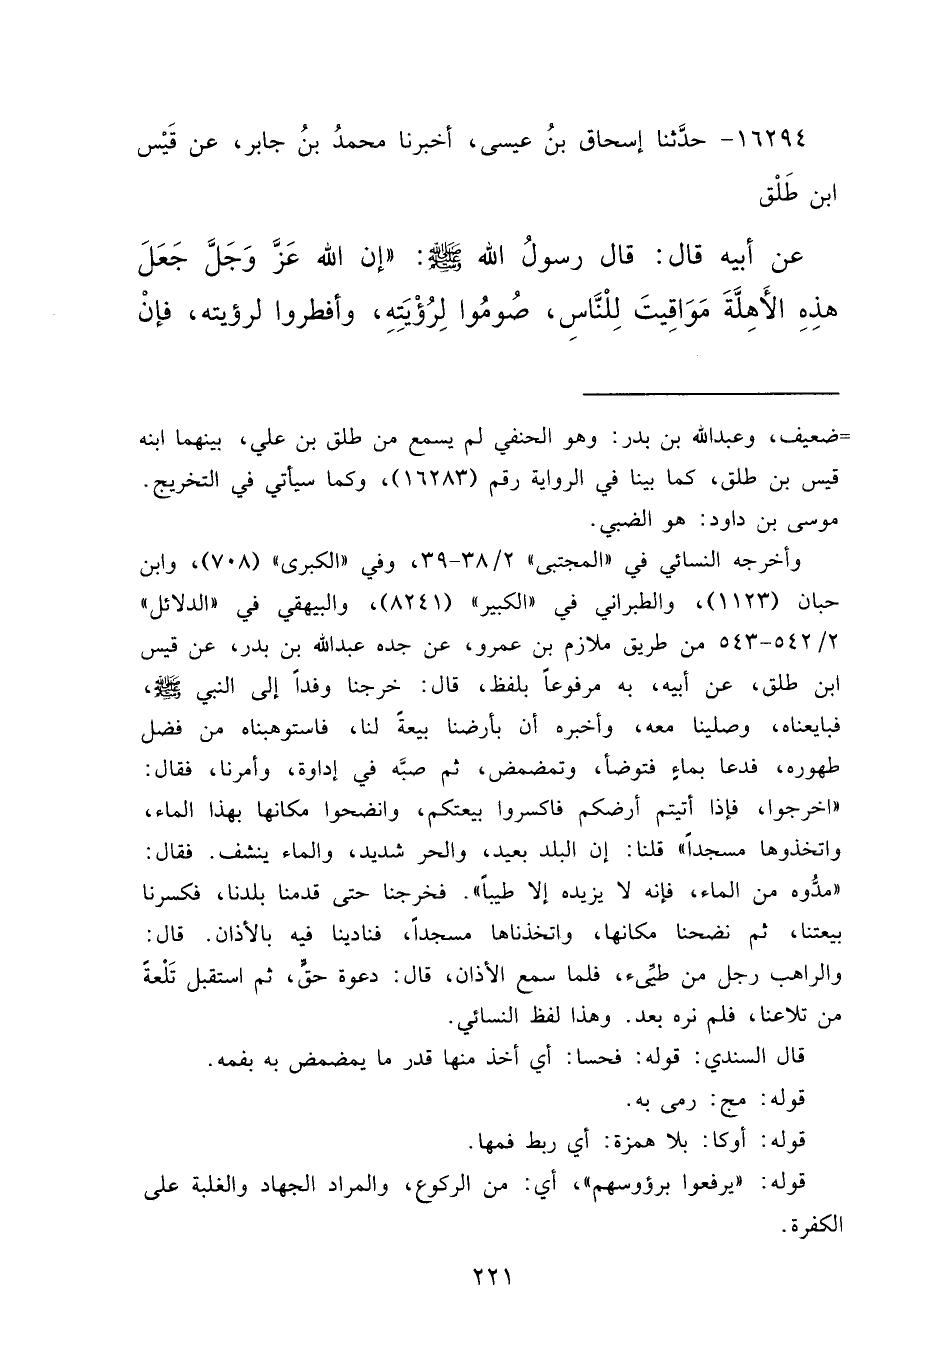 ١٦٢٩٤- حدَّثنا إسحاق بنُ عيسى، أخبرنا محمدُ بنُ جابر، عن قَيْس
ابن طَلْق
عن أبيه قال: قال رسولُ الله ﷺ: «إن الله عَزَّ وَجَلَّ جَعَلَ
هذِهِ الأَهِلَّةَ مَوَاقِيتَ لِلْنَّاسِ، صُومُوا لِرُؤْيَتِهِ، وأفطروا لرؤيته، فإنْ
=ضعيف، وعبدالله بن بدر: وهو الحنفي لم يسمع من طلق بن علي، بينهما ابنه
قيس بن طلق، كما بينا في الرواية رقم (١٦٢٨٣)، وكما سيأتي في التخريج.
موسى بن داود: هو الضبي.
وأخرجه النسائي في «المجتبى» ٣٨/٢-٣٩، وفي «الكبرى» (٧٠٨)، وابن
حبان (١١٢٣)، والطبراني في «الكبير» (٨٢٤١)، والبيهقي في «الدلائل»
٥٤٢/٢-٥٤٣ من طريق ملازم بن عمرو، عن جده عبدالله بن بدر، عن قيس
ابن طلق، عن أبيه، به مرفوعاً بلفظ، قال: خرجنا وفداً إلى النبي ﷺ،
فبايعناه، وصلينا معه، وأخبره أن بأرضنا بيعةً لنا، فاستوهبناه من فضل
طهوره، فدعا بماءٍ فتوضأ، وتمضمض، ثم صبَّه في إداوة، وأمرنا، فقال:
«اخرجوا، فإذا أتيتم أرضكم فاكسروا بيعتكم، وانضحوا مكانها بهذا الماء،
واتخذوها مسجداً» قلنا: إن البلد بعيد، والحر شديد، والماء ينشف. فقال:
«مدُّوه من الماء، فإنه لا يزيده إلا طيباً». فخرجنا حتى قدمنا بلدنا، فكسرنا
بيعتنا، ثم نضحنا مكانها، واتخذناها مسجداً، فنادينا فيه بالأذان. قال:
والراهب رجل من طيِّىء، فلما سمع الأذان، قال: دعوة حقٍّ، ثم استقبل تَلْعةً
من تلاعنا، فلم نره بعد. وهذا لفظ النسائي.
قال السندي: قوله: فحسا: أي أخذ منها قدر ما يمضمض به بفمه.
قوله: مج: رمى به.
قوله: أوكا: بلا همزة: أي ربط فمها.
قوله: «يرفعوا برؤوسهم»، أي: من الركوع، والمراد الجهاد والغلبة على
الكفرة.
٢٢١